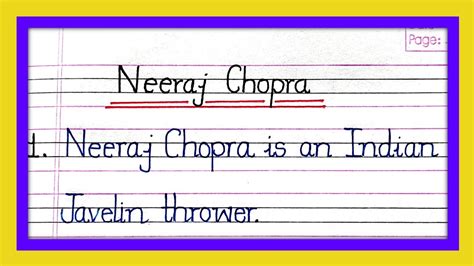 Page:
Neeraj Chopra
1. Neeraj Chopra is an Indian
Javelin thrower.